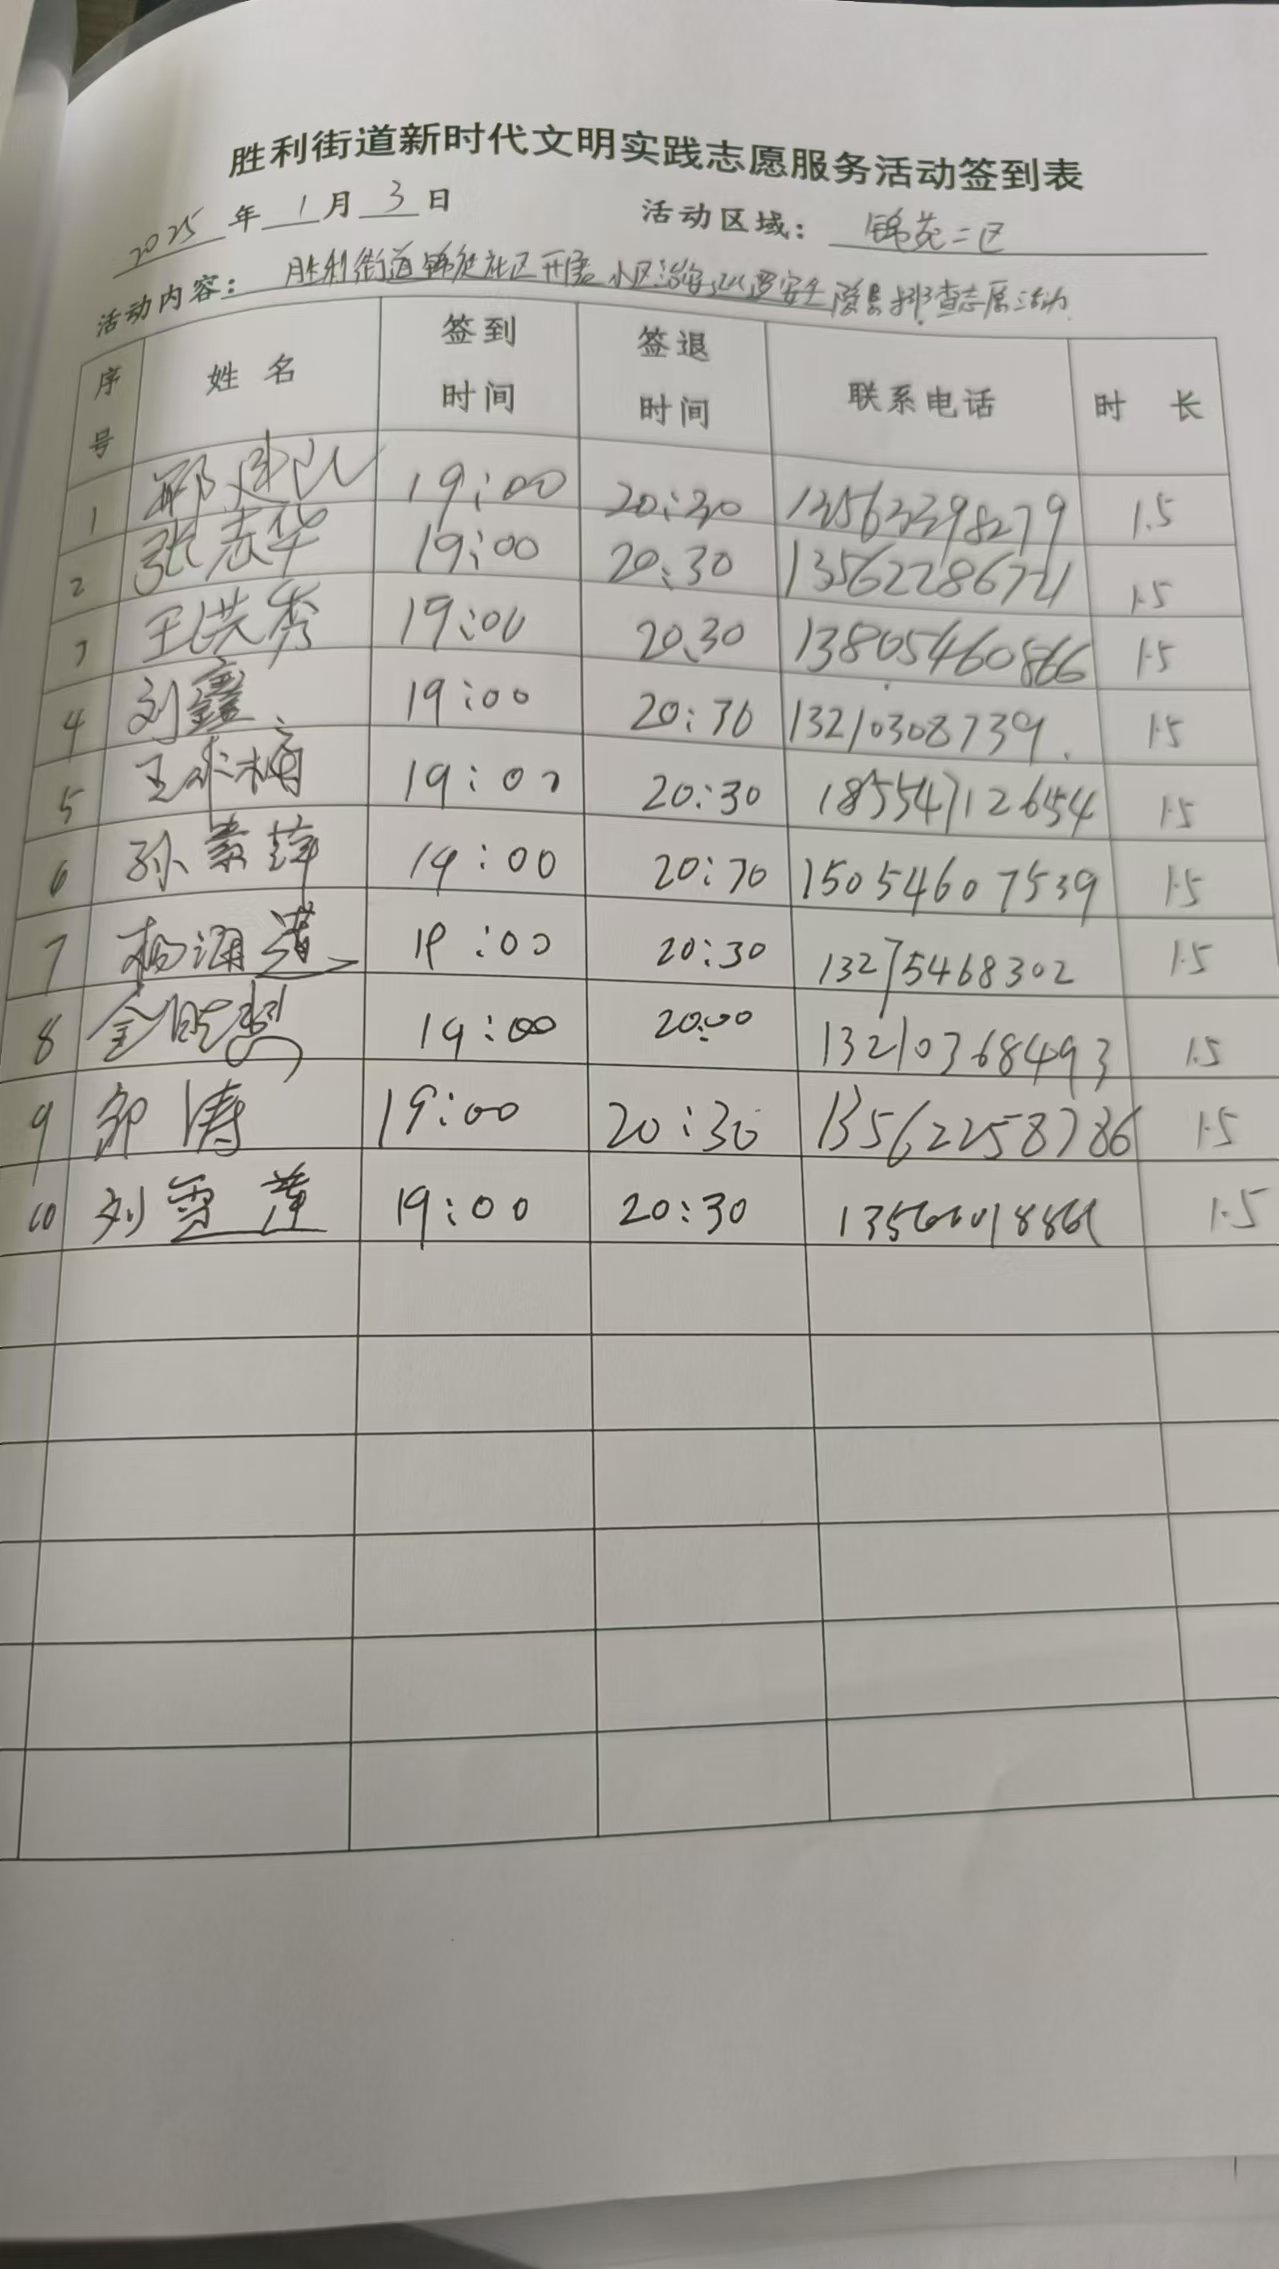 胜利街道新时代文明实践志愿服务活动签到表
2025 年 1 月 3 日 活动区域: 锦苑二区
活动内容: 胜利街道锦苑社区开展小区治安巡逻安全隐患排查志愿活动
序号 姓名 签到时间 签退时间 联系电话 时长
1 19:00 20:30 1.5
2 张志华 19:00 20:30 13562286721 1.5
3 王洪秀 19:00 20:30 13805460866 1.5
4 刘鑫 19:00 20:30 13210308739 1.5
5 19:00 20:30 18554712654 1.5
6 孙素萍 19:00 20:30 15054607539 1.5
7 杨海莲 19:00 20:30 13275468302 1.5
8 19:00 20:00 13210368493 1.5
9 邹涛 19:00 20:30 13562258786 1.5
10 刘雪莲 19:00 20:30 1.5